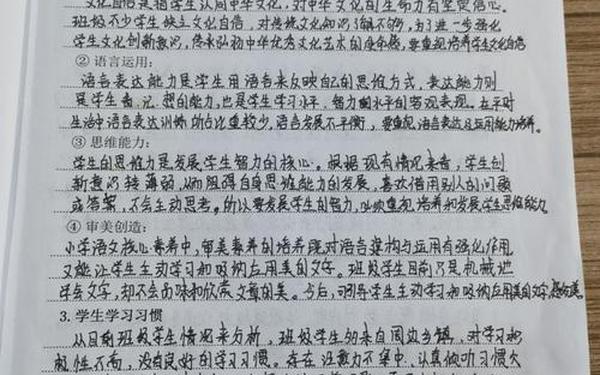 文化自信是指学生认同中华文化,对中华文化的生命力有坚定信心。
班级不少学生缺乏文化自信,对传统文化知识了解不够,为了进一步强化
学生文化创新意识,传承弘扬中华优秀文化艺术的使命感,要重视培养学生文化自信
② 语言运用:
语言表达能力是学生用语言来反映自己的思维方式,表达能力则
是学生看、记、想的能力,也是学生学习水平、智力水平的客观表现。在平时
生活中语言表达训练所占比重较少,语言发展不平衡,要重视语言表达及运用能力培养。
③ 思维能力:
学生的思维能力是发展学生智力的核心。根据现有情况来看,学生创
新意识较薄弱,从而阻碍自身思维能力的发展,喜欢借用别人的问题
或答案,不会主动思考。所以要发展学生的智力,必须重视培养和发展学生思维能力。
④ 审美创造:
小学语文核心素养中,审美素养的培养既对语言建构与运用有强化作用,
又能让学生主动学习和吸纳应用美的文字。班级学生目前只是机械地
学会文字,却不会品味和欣赏文章的美。今后,引导学生主动学习和吸纳应用美的文字,
3. 学生学习习惯
从目前班级学生情况来分析,班级学生多来自周边乡镇,对学习积
极性不高,没有良好的学习习惯。存在注意力不集中、认真倾听习惯欠